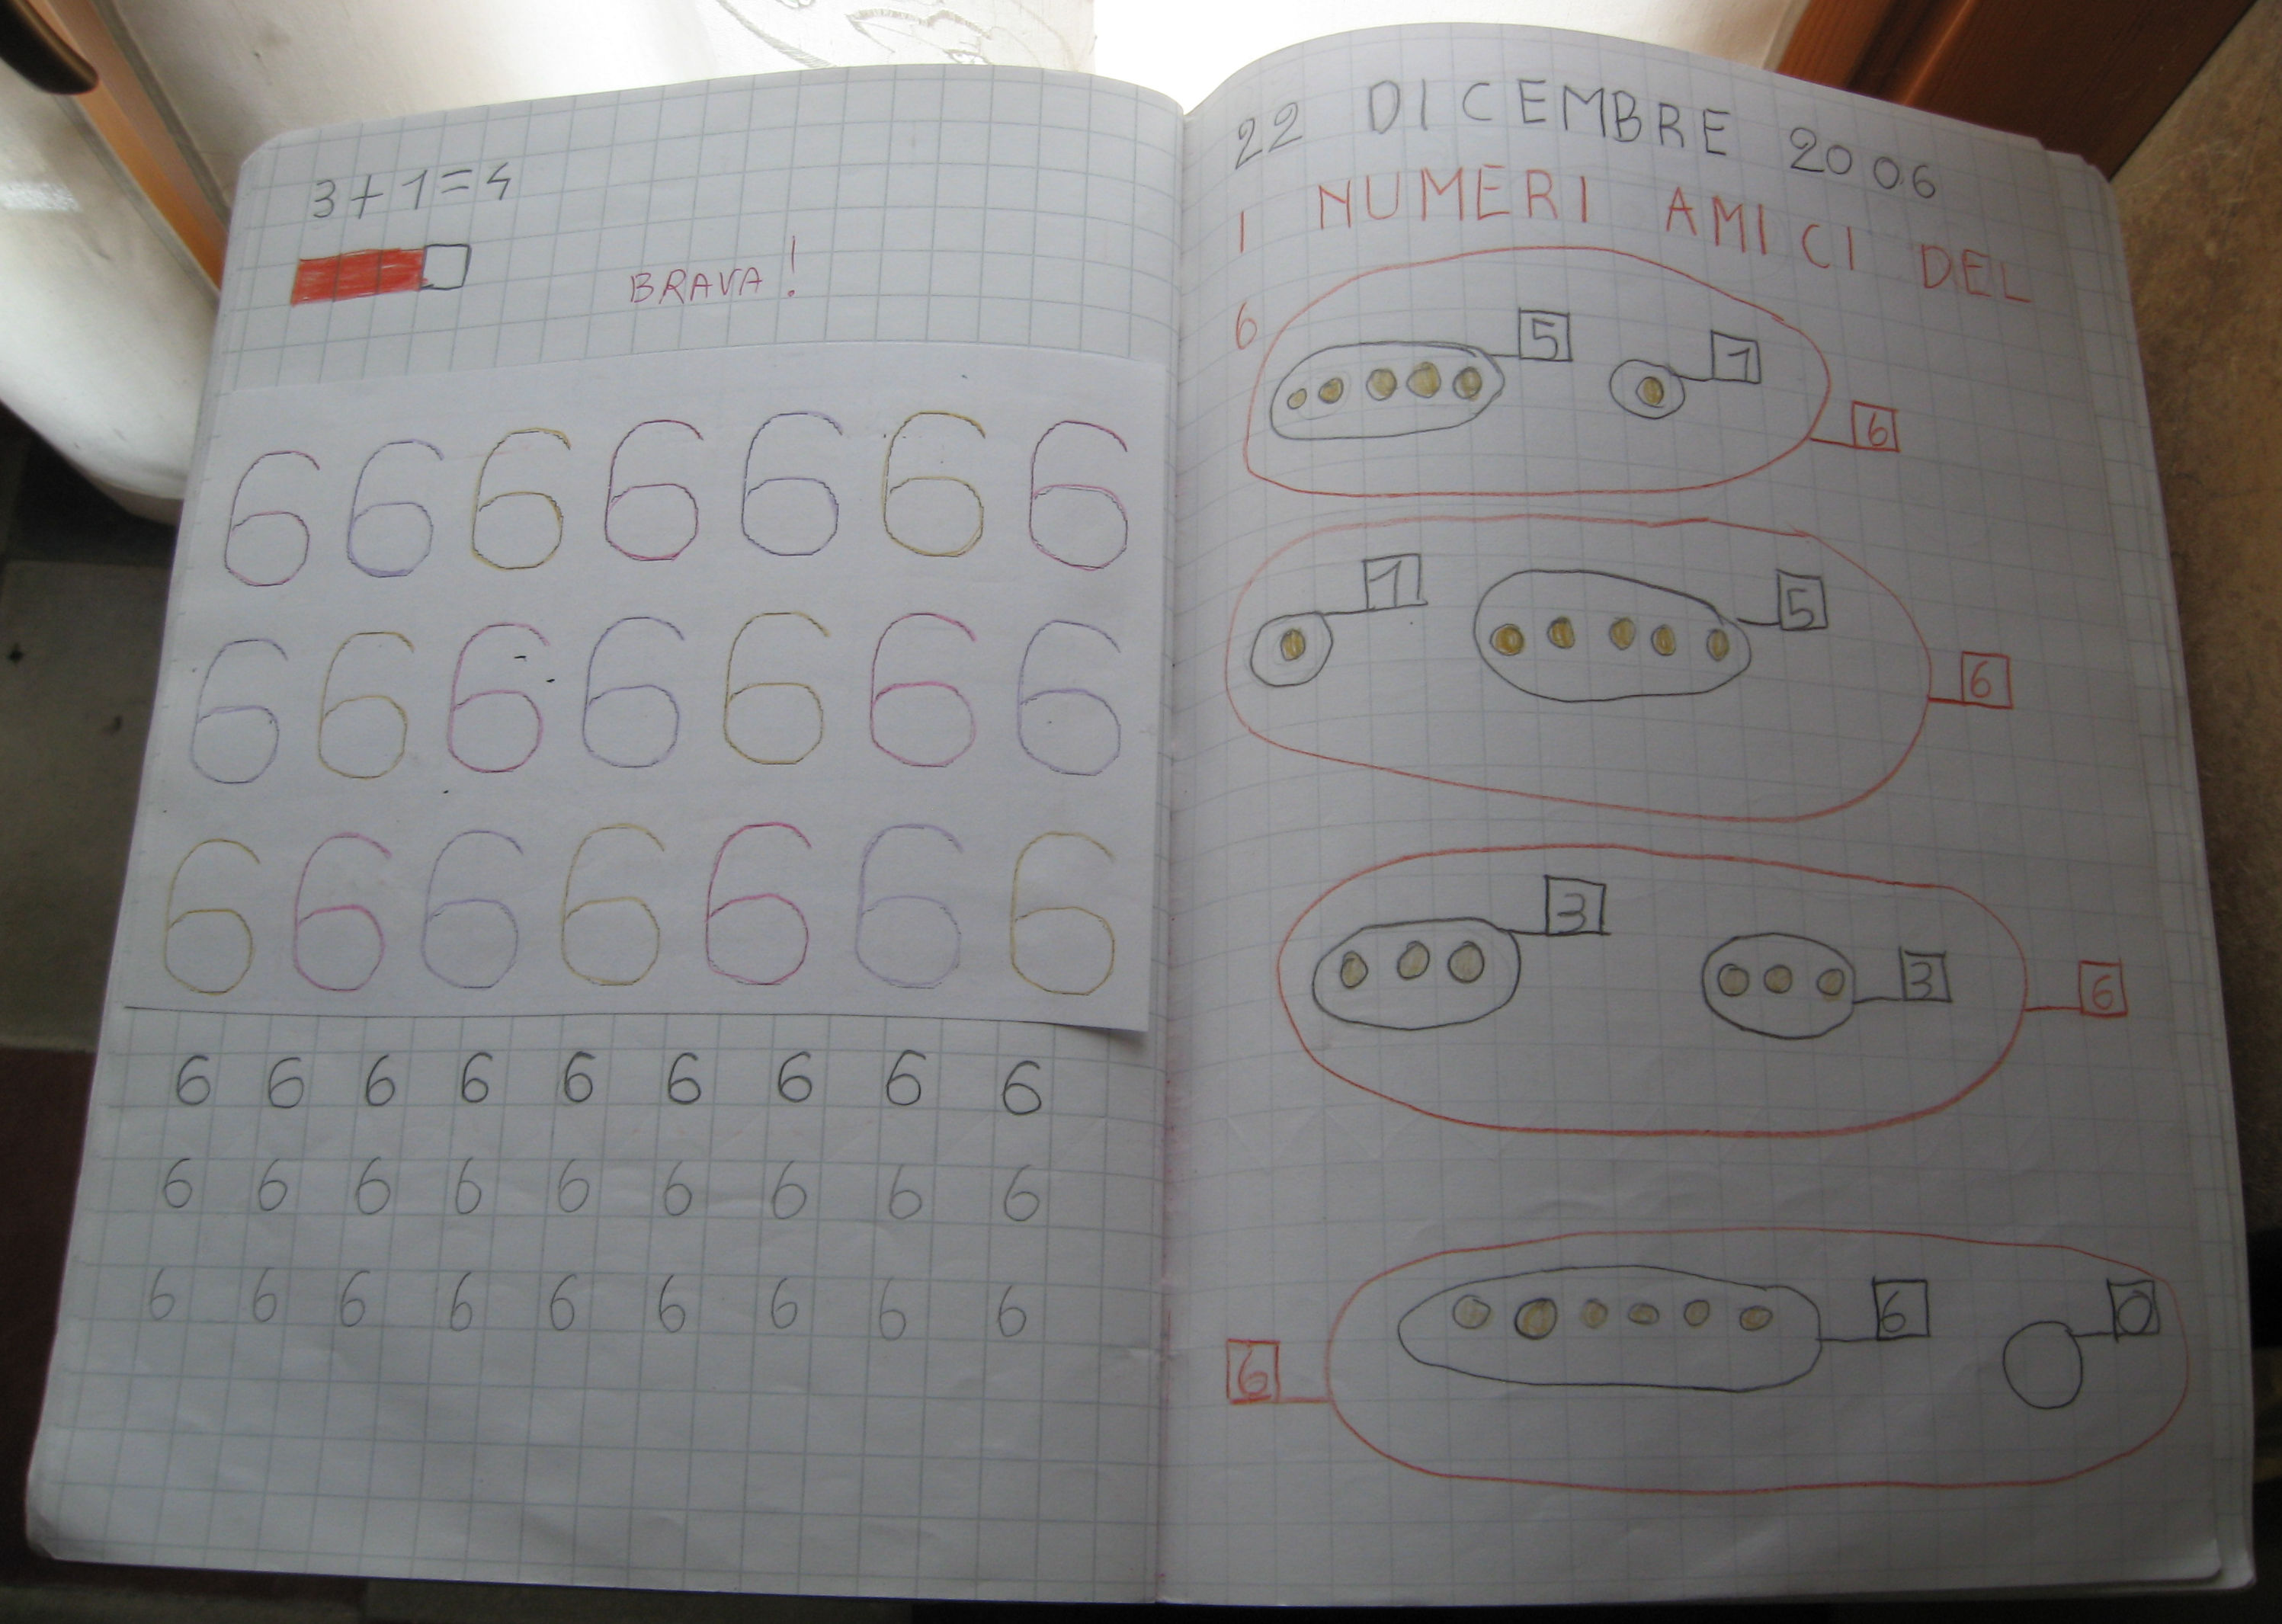 3+1=4
BRAVA!
6 6 6 6 6 6 6
6 6 6 6 6 6 6
6 6 6 6 6 6 6
6 6 6 6 6 6 6 6 6
6 6 6 6 6 6 6 6 6
6 6 6 6 6 6 6 6 6
22 DICEMBRE 2006
I NUMERI AMICI DEL
6
5 1
6
1 5
6
3
3 6
6 0
6